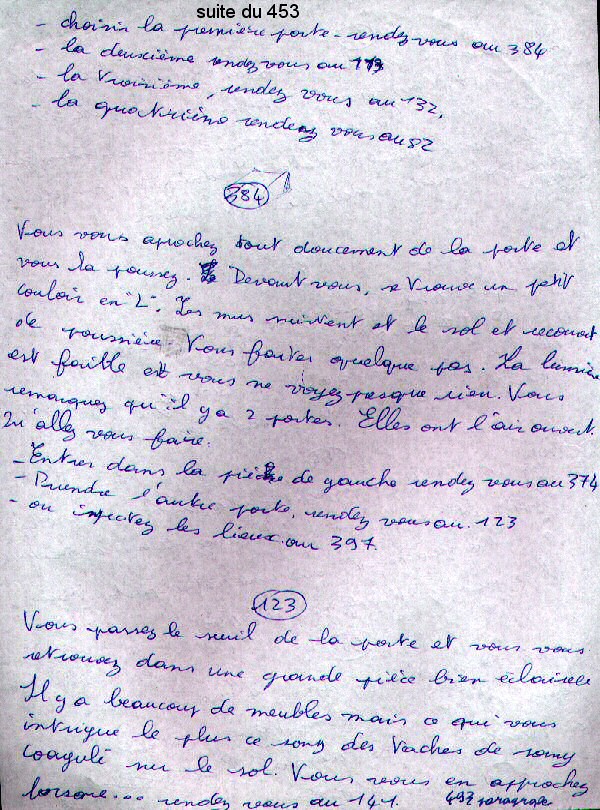 suite du 453
- choisir la première porte - rendez vous au 384
- la deuxième rendez vous au
- la troisième, rendez vous au 132.
- la quatrième rendez vous au 82
384
Vous vous aprochez tout doucement de la porte et
vous la poussez. Devant vous, se trouve un petit
couloir en "L". Les murs suintent et le sol et recouvert
de poussière. Vous faites quelque pas. La lumière
est faible et vous ne voyez presque rien. Vous
remarquez qu'il y a 2 portes. Elles ont l'air ouvert.
Qu'allez vous faire.
- Entrer dans la pièce de gauche rendez vous au 374
- Prendre l'autre porte, rendez vous au. 123
- ou inspectez les lieux. au 397.
123
Vous passez le seuil de la porte et vous vous
retrouvez dans une grande pièce bien éclairée
Il y a beaucoup de meubles mais ce qui vous
intrigue le plus ce song des taches de sang
coagulé sur le sol. Vous vous en approchez
lorsque... rendez vous au 141.
paragraphe